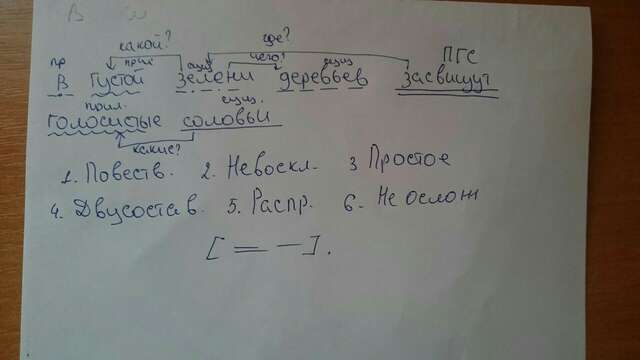 В
где?
какой? чего? ПГС
пр прил сущ сущ
В густой зелени деревьев засвищут
прил. сущ.
голосистые соловьи
какие?
1. Повеств. 2. Невоскл. 3 Простое
4. Двусостав. 5. Распр. 6. Не ослож
[ = — ].